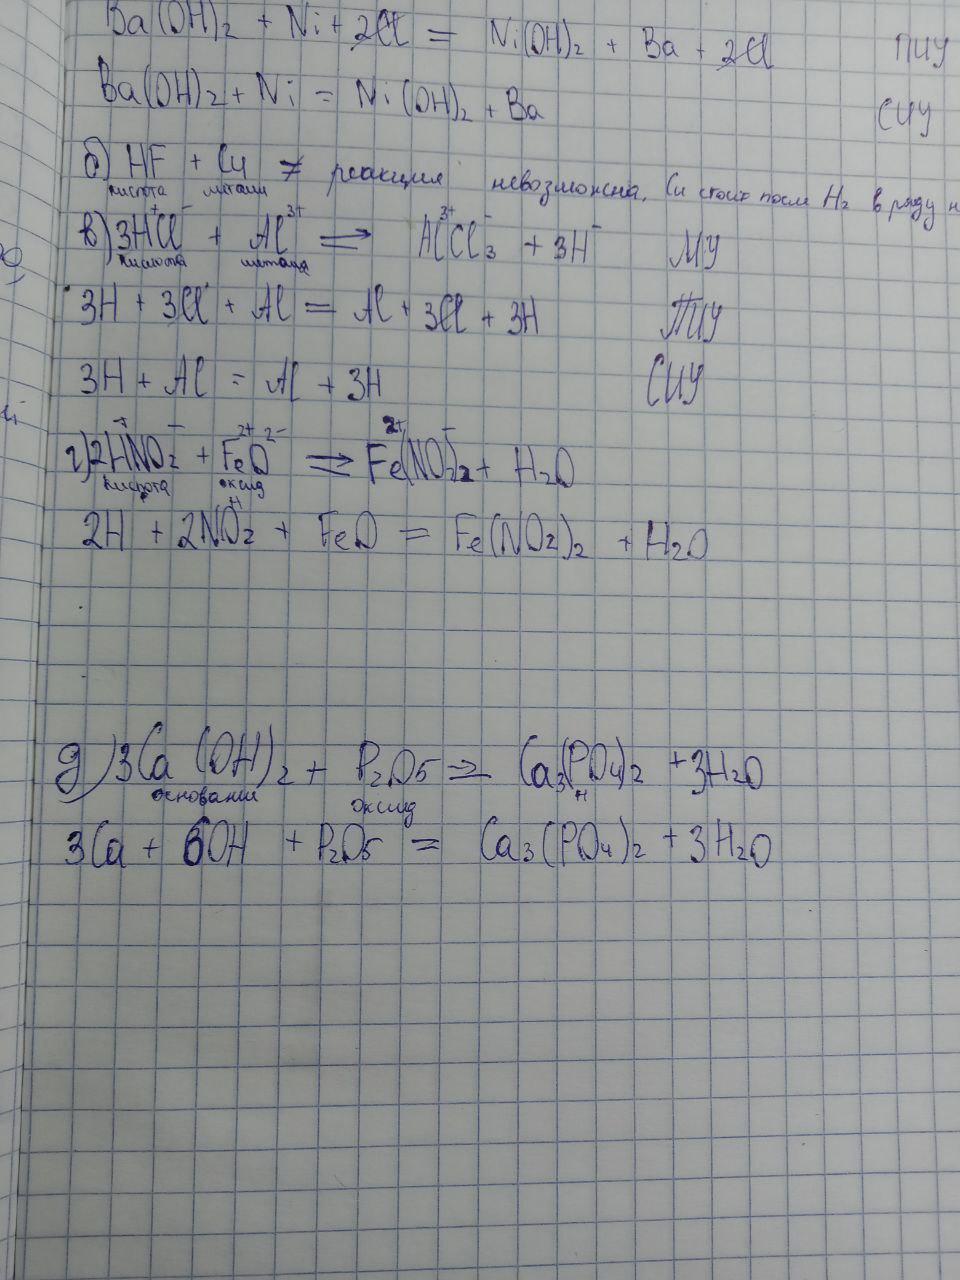 Ba(OH)₂ + Ni + 2Cl = Ni(OH)₂ + Ba + 2Cl ПИУ
Ba(OH)₂ + Ni = Ni(OH)₂ + Ba СИУ
б) HF + Cu ≠ реакция невозможна, Cu стоит после H₂ в ряду н
кислота металл
в) 3H⁺Cl⁻ + Al³⁺ ⇄ Al³⁺Cl⁻₃ + 3H⁻ МУ
кислота металл
3H + 3Cl + Al = Al + 3Cl + 3H ПИУ
3H + Al = Al + 3H СИУ
г) 2H⁺NO₂⁻ + Fe²⁺O²⁻ ⇄ Fe²⁺(NO₂⁻)₂ + H₂O
кислота оксид
2H + 2NO₂ + FeO = Fe(NO₂)₂ + H₂O
н
д) 3Ca(OH)₂ + P₂O₅ ⇄ Ca₃(PO₄)₂ + 3H₂O
основании оксид н
3Ca + 6OH + P₂O₅ = Ca₃(PO₄)₂ + 3H₂O